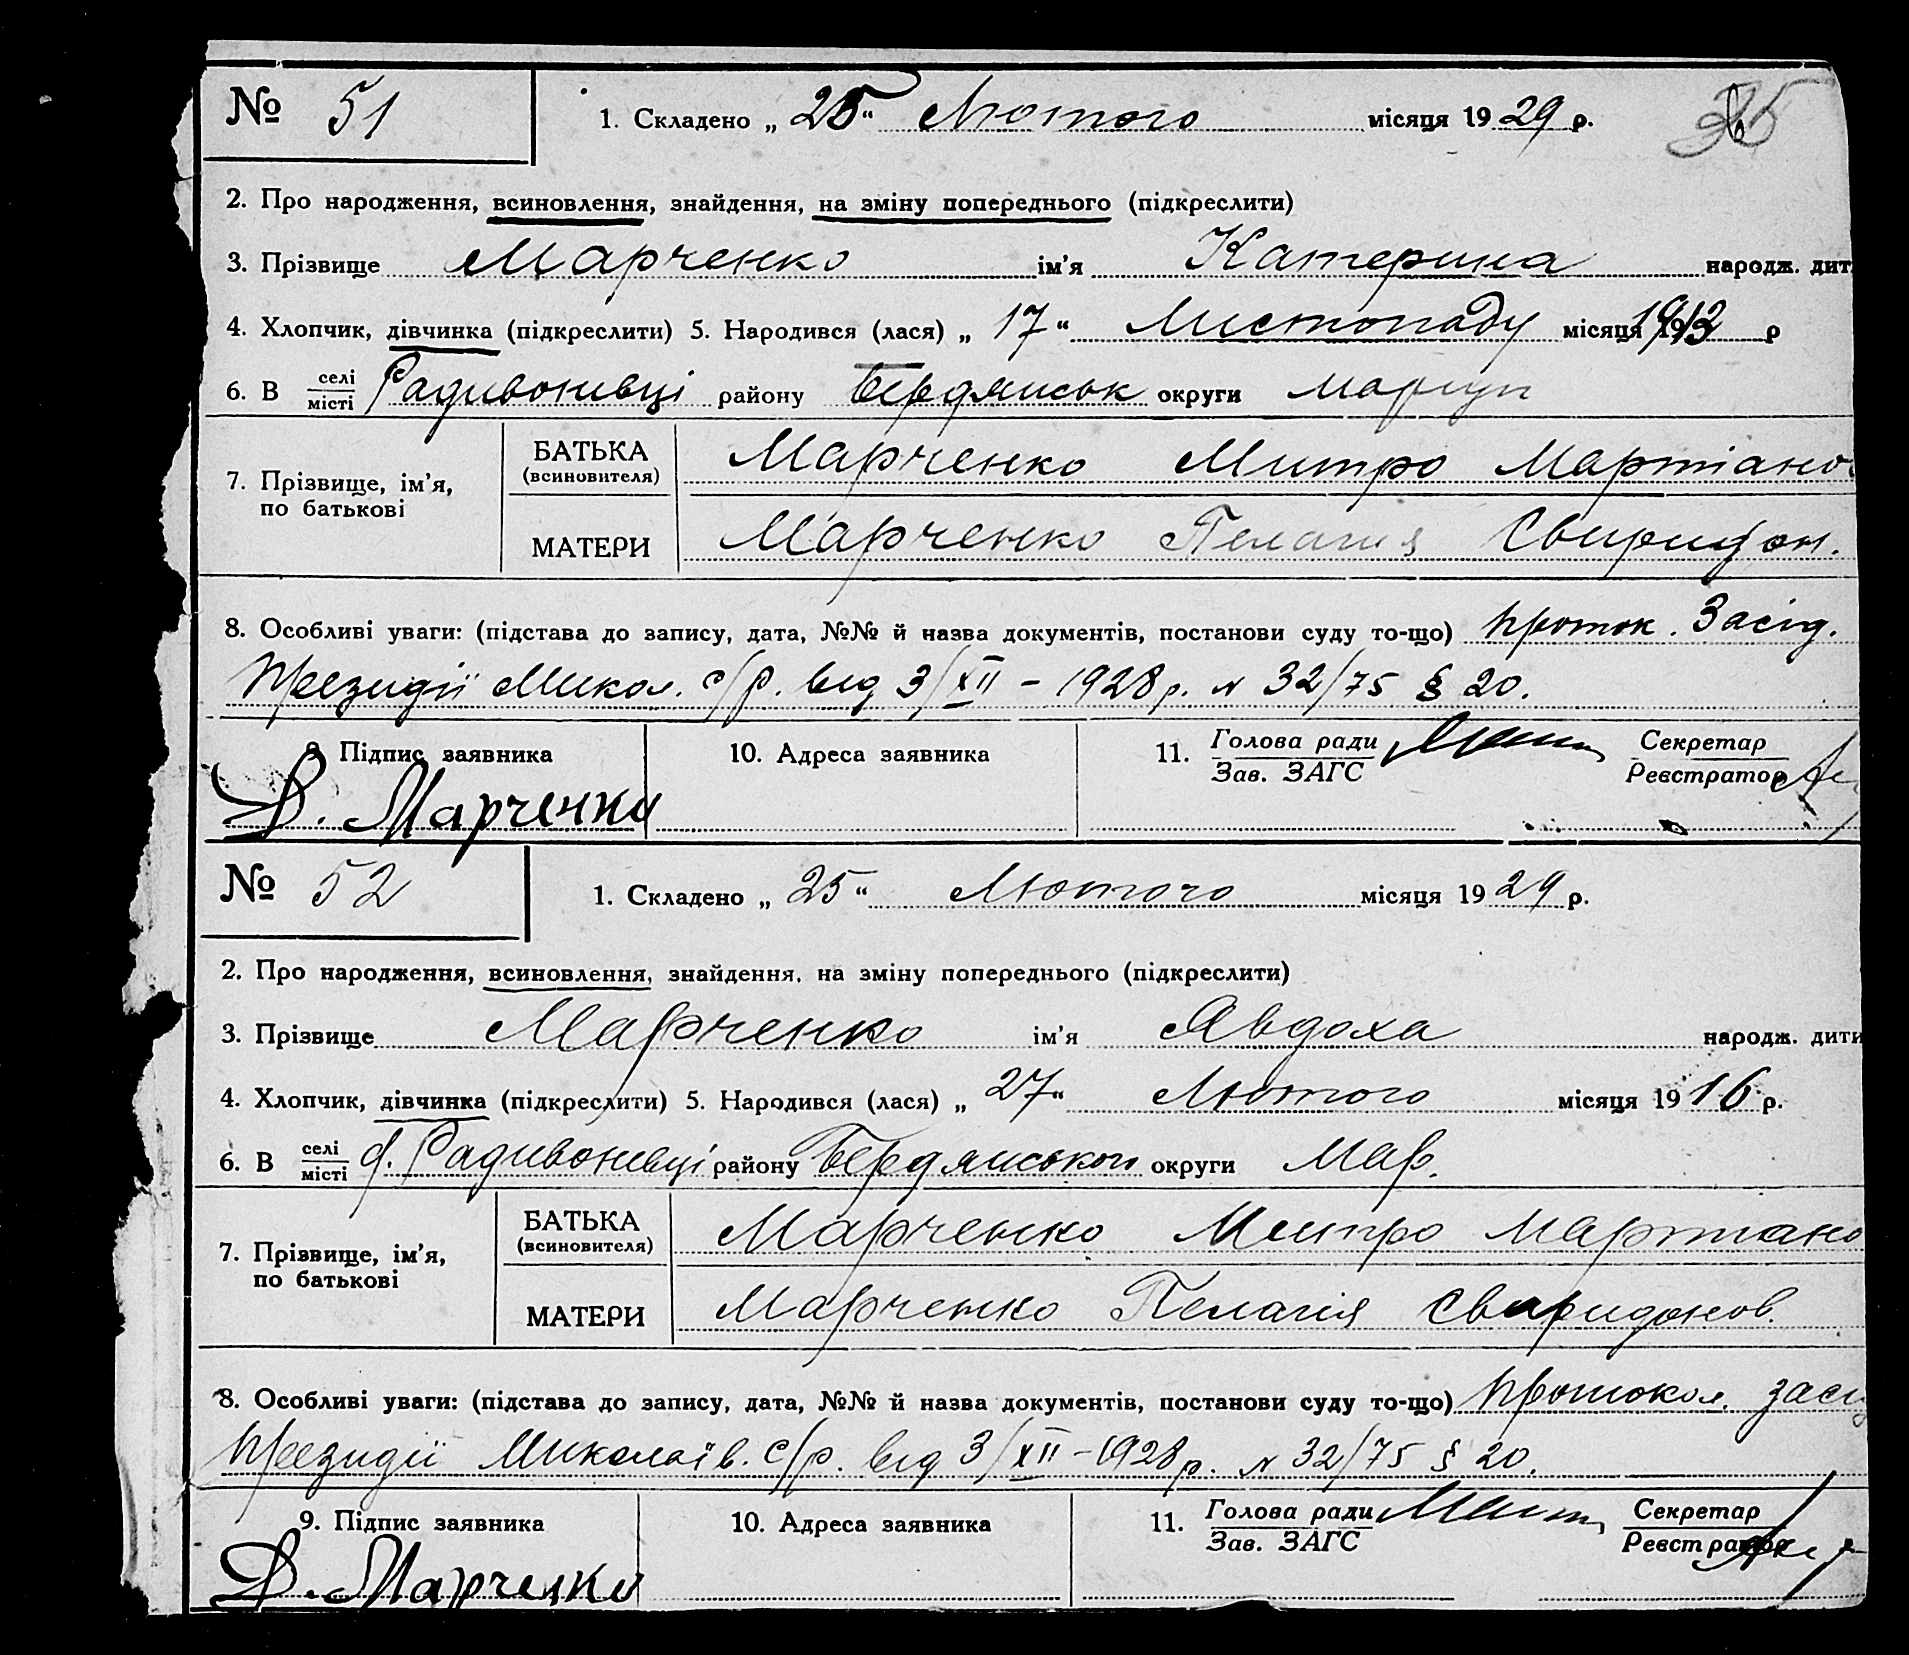 № 51 1. Складено „ 25 “ Лютого місяця 1929 р. 35
2. Про народження, всиновлення, знайдення, на зміну попереднього (підкреслити)
3. Прізвище Марченко ім’я Катерина народж. дит
4. Хлопчик, дівчинка (підкреслити) 5. Народився (лася) „ 17 “ Листопаду місяця 1913 р
6. В селі/місті Радивонивці району Бердянськ округи Маріуп
7. Прізвище, ім’я, по батькові БАТЬКА (всиновителя) Марченко Митро Мартіано
МАТЕРИ Марченко Пелагия Свиридон.
8. Особливі уваги: (підстава до запису, дата, №№ й назва документів, постанови суду то-що) проток. Засід.
Президії Микол. с/р. від 3/XII – 1928 р. № 32/75 § 20.
9. Підпис заявника 10. Адреса заявника 11. Голова ради/Зав. ЗАГС Секретар/Реєстратор
Д. Марченко
№ 52 1. Складено „ 25 “ Лютого місяця 1929 р.
2. Про народження, всиновлення, знайдення, на зміну попереднього (підкреслити)
3. Прізвище Марченко ім’я Явдоха народж. дити
4. Хлопчик, дівчинка (підкреслити) 5. Народився (лася) „ 27 “ Лютого місяця 1916 р.
6. В селі/місті с. Радивонивці району Бердянського округи Мар.
7. Прізвище, ім’я, по батькові БАТЬКА (всиновителя) Марченко Митро Мартиано
МАТЕРИ Марченко Пелагія Свиридонов.
8. Особливі уваги: (підстава до запису, дата, №№ й назва документів, постанови суду то-що) протокол. засі
Президії Миколаїв. с/р. від 3/XII – 1928 р. № 32/75 § 20.
9. Підпис заявника 10. Адреса заявника 11. Голова ради/Зав. ЗАГС Секретар/Реєстратор
Д. Марченко